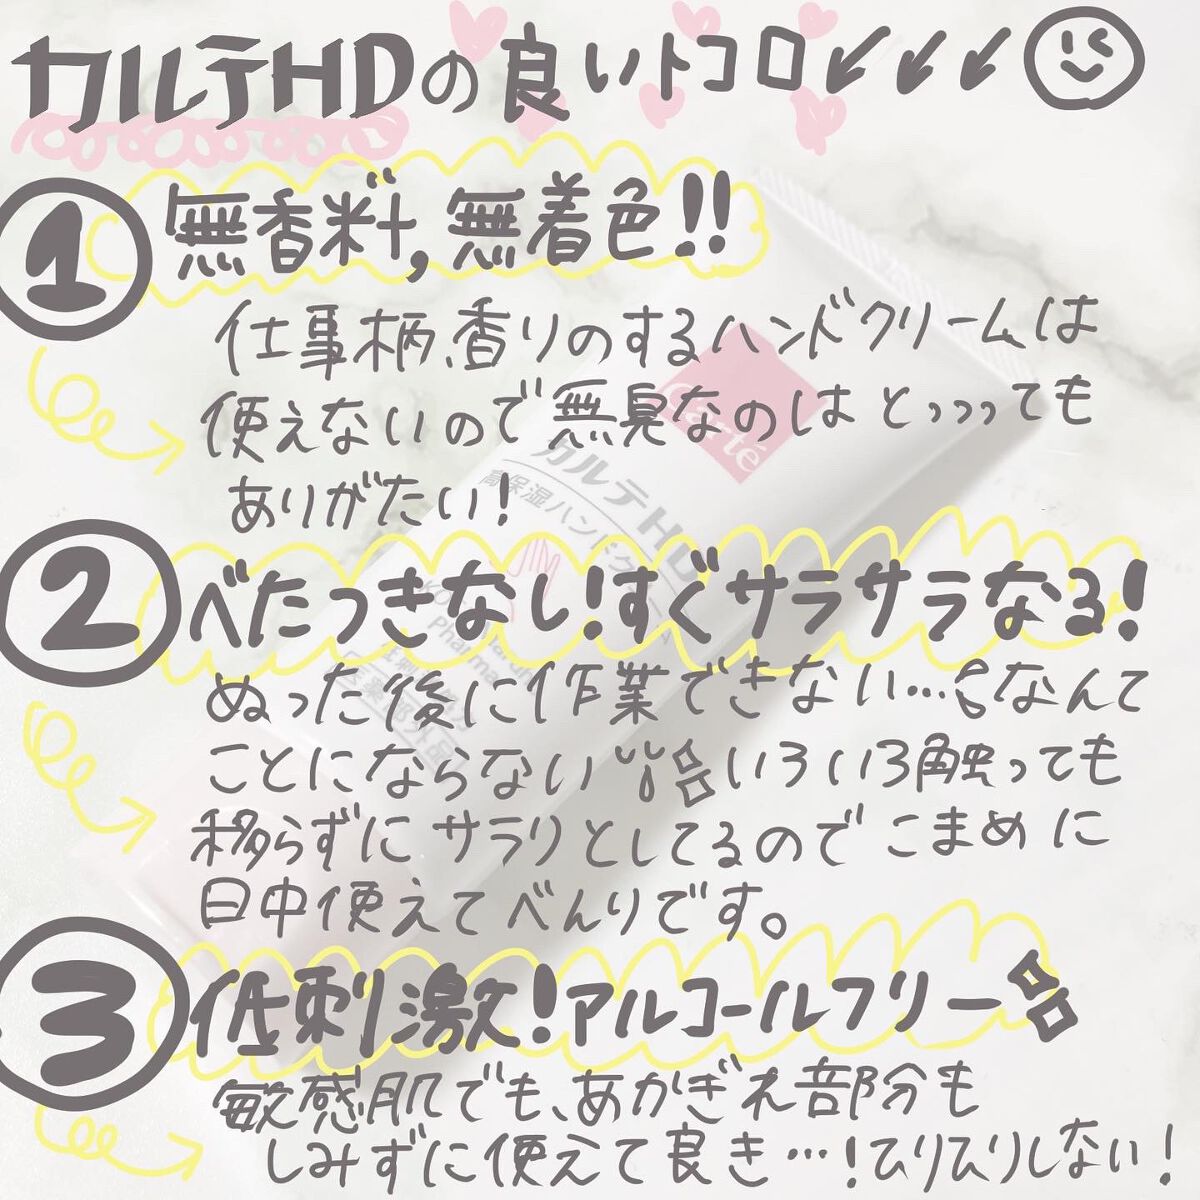 カルテHDの良いトコロ↙↙↙
1 無香料,無着色!!
仕事柄、香りのするハンドクリームは
使えないので無臭なのはとっっっても
ありがたい!
2 べたつきなし!すぐサラサラなる!
ぬった後に作業できない…なんて
ことにならないいろいろ触っても
移らずにサラリとしてるのでこまめに
日中使えてべんりです。
3 低刺激!アルコールフリー
敏感肌でも、あかぎれ部分も
しみずに使えて良き…!ヒリヒリしない!
Carté
カルテHD
高保湿ハンドクリーム